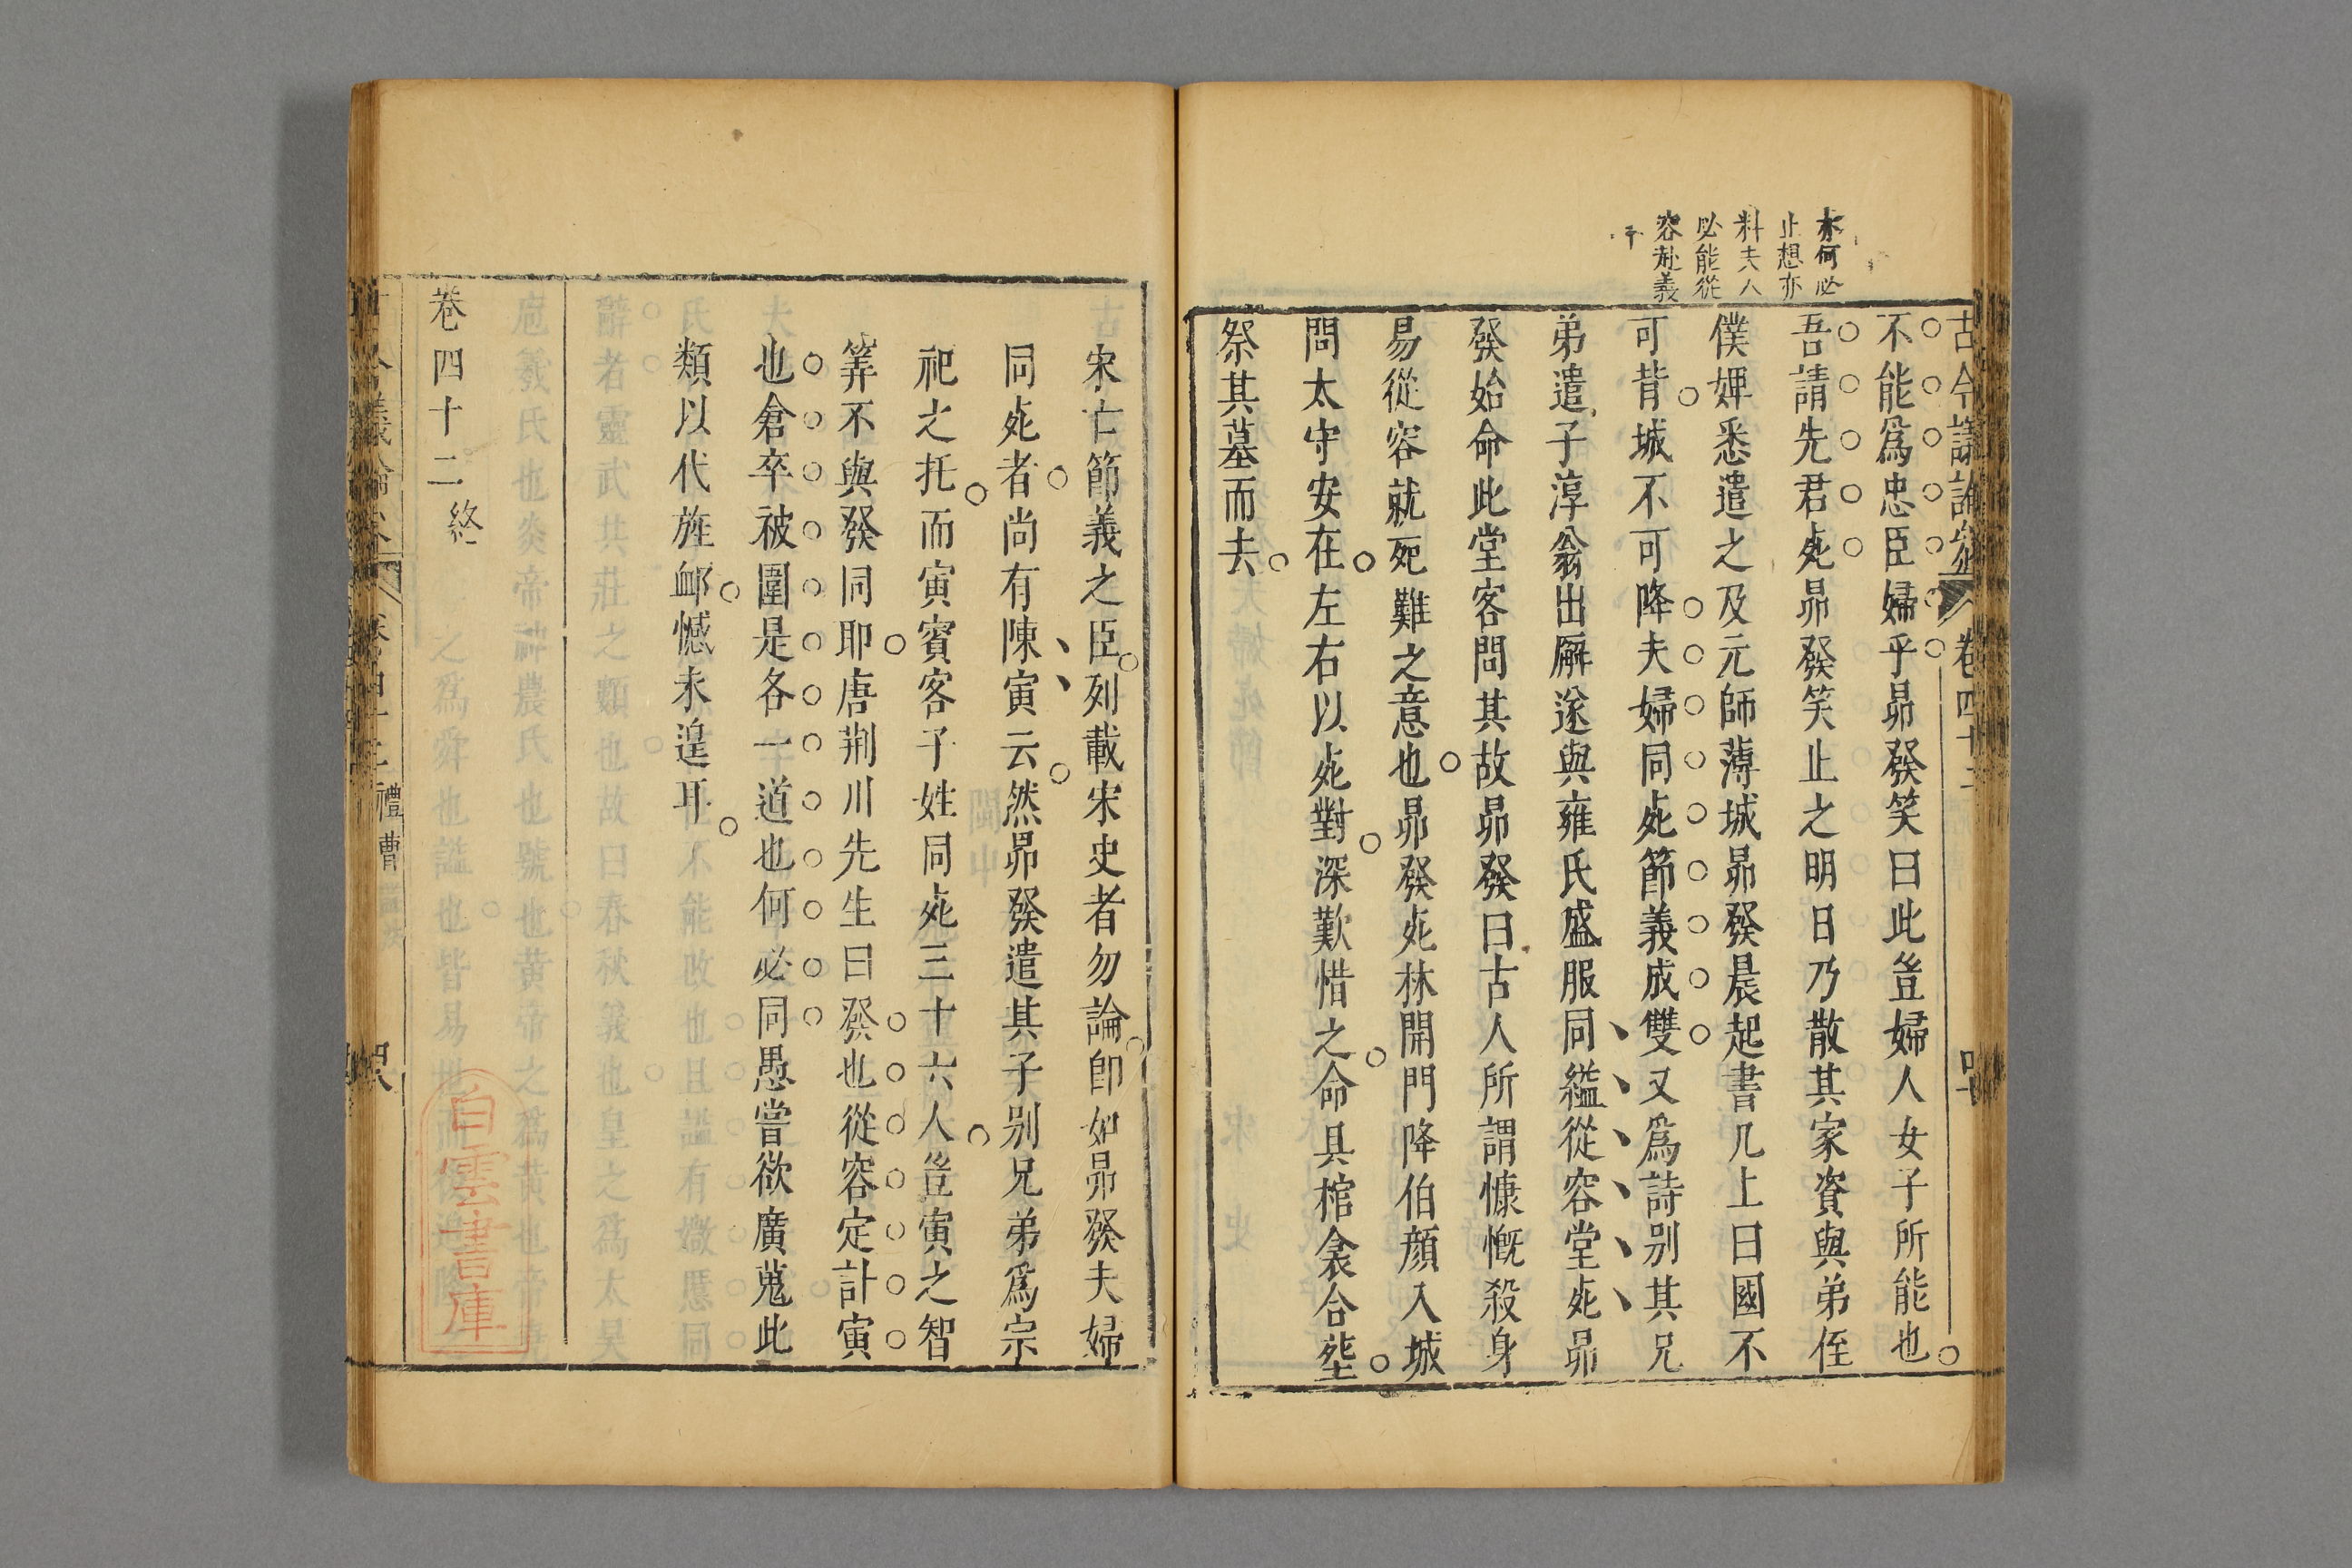 古今議論參
卷四十二
不能爲忠臣婦乎昴發笑曰此豈婦人女子所能也
吾請先君死昴發笑止之明日乃散其家資與弟侄
僕婢悉遣之及元師薄城昴發晨起書几上曰國不
可背城不可降夫婦同死節義成雙又爲詩别其兄
弟遣子淳翁出廨遂與雍氏盛服同縊從容堂死昴
發始命此堂客問其故昴發曰古人所謂慷慨殺身
易從容就死難之意也昴發死林開門降伯顔入城
問太守安在左右以死對深歎惜之命具棺衾合塟
祭其墓而去
亦何必
止想亦
料夫人
必能從
容赴義
宋亡節義之臣列載宋史者勿論卽如昴發夫婦
同死者尚有陳寅云然昴發遣其子别兄弟爲宗
祀之托而寅賓客子姓同死三十六人豈寅之智
筭不與發同耶唐荆川先生曰發也從容定計寅
也倉卒被圍是各一道也何必同愚嘗欲廣蒐此
類以代旌䘏憾未遑耳
卷四十二終
禮曹
白雲書庫